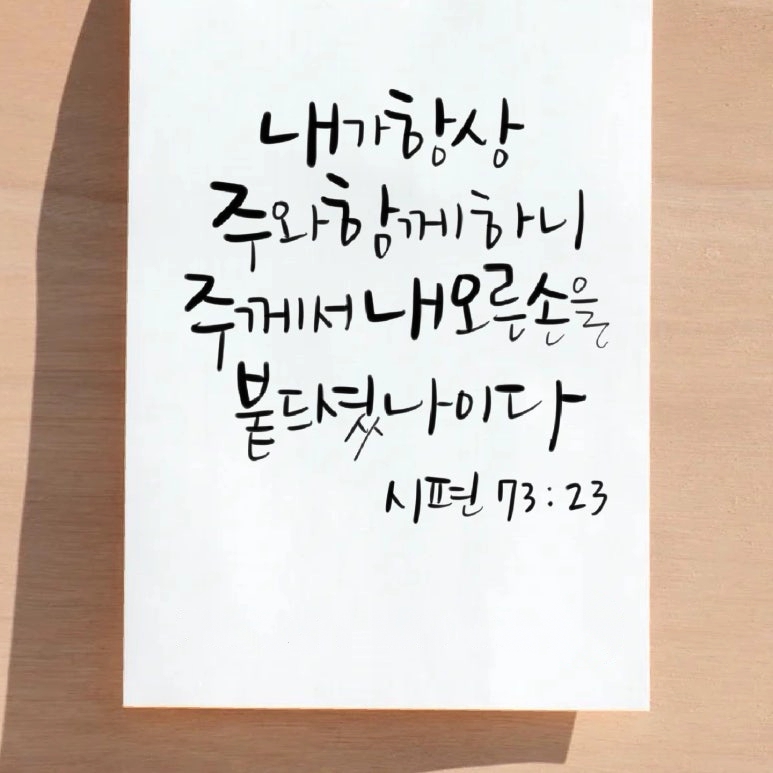 내가 항상
주와 함께 하니
주께서 내 오른손을
붙드셨나이다
시편 73:23